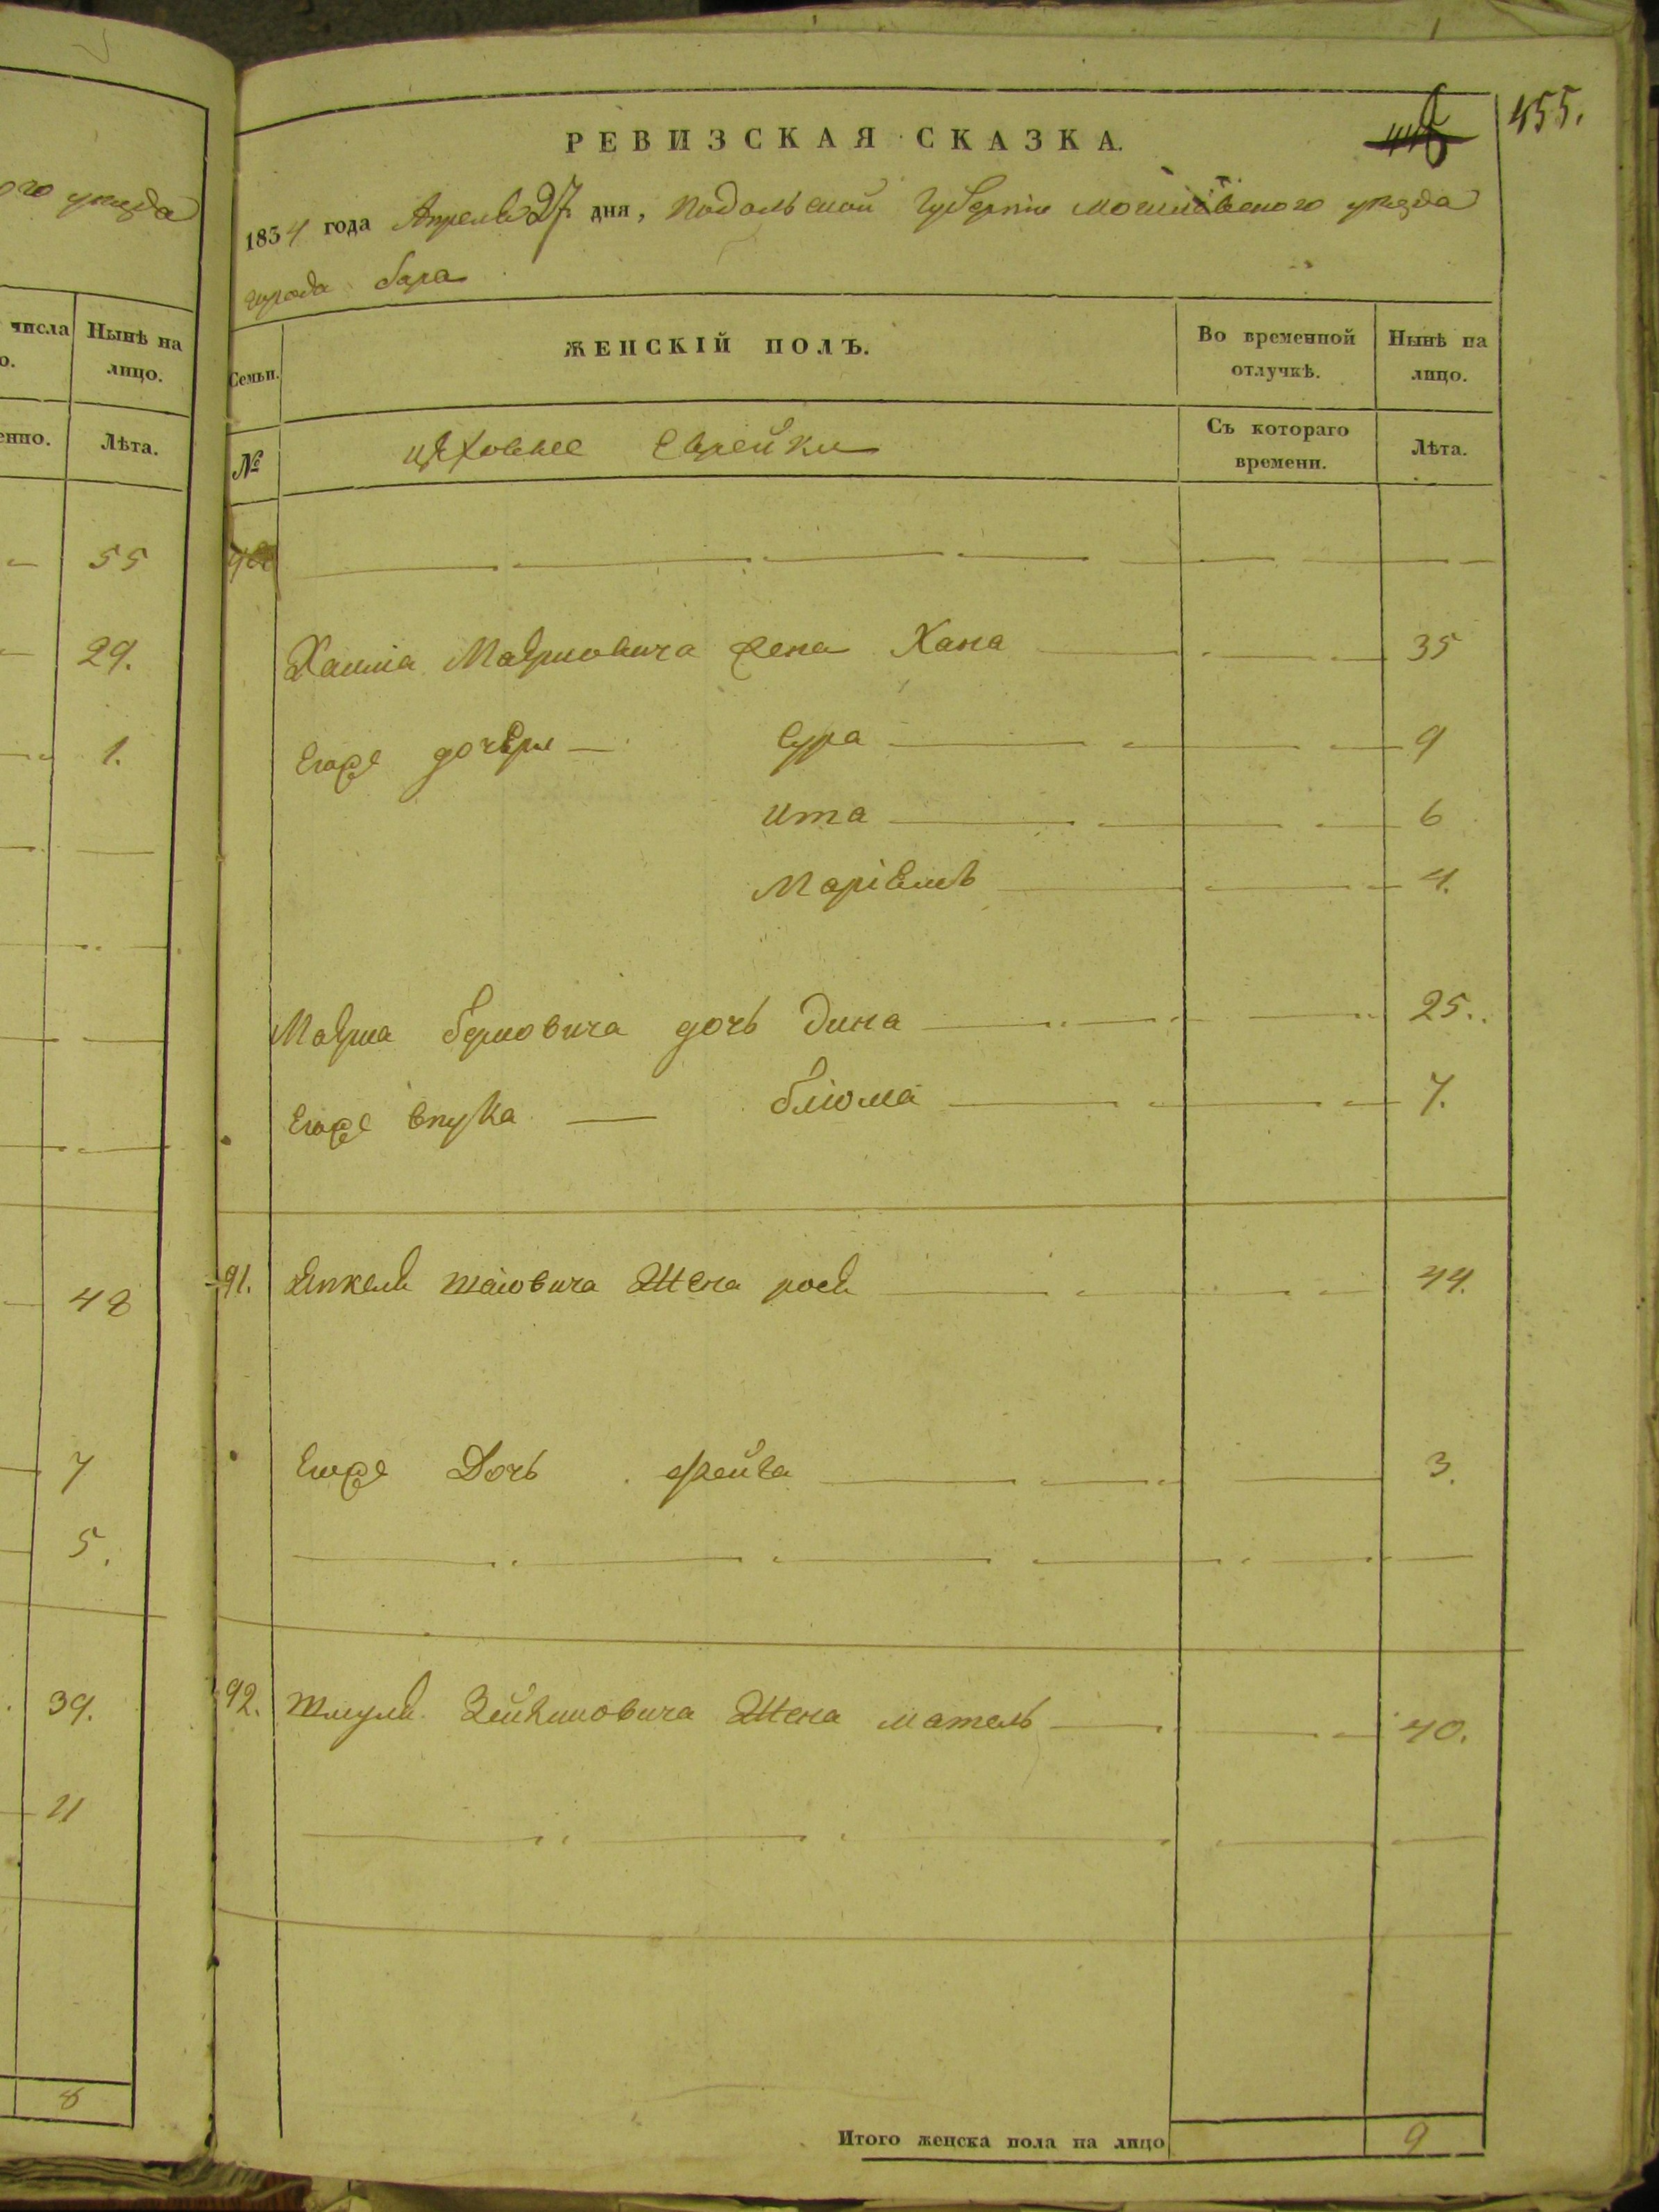 ого уезда
числа
о.
Нынѣ на
лицо.
енно.
Лѣта.
55
29.
1.
48
7
5.
39.
11
8
455.
РЕВИЗСКАЯ СКАЗКА.
1834 года Апреля 27 дня, подольской Губернiи могилевского уезда
города бара
Семьи.
ЖЕНСКІЙ ПОЛЪ.
Во временной
отлучкѣ.
Нынѣ на
лицо.
№
цеховые Еврейки
Съ котораго
времени.
Лѣта.
Хаима Мавшовича жена Хана 35
Егоже дочери Сура 9
ита 6
Марiемъ 4.
Мавша берковича дочь Дина 25.
Егоже внука блюма 7.
91. Янкеля Жена рося 44.
Егоже Дочь фейга 3.
92. Шмуля Зейликовича Жена матель 40.
Итого женска пола на лицо 9